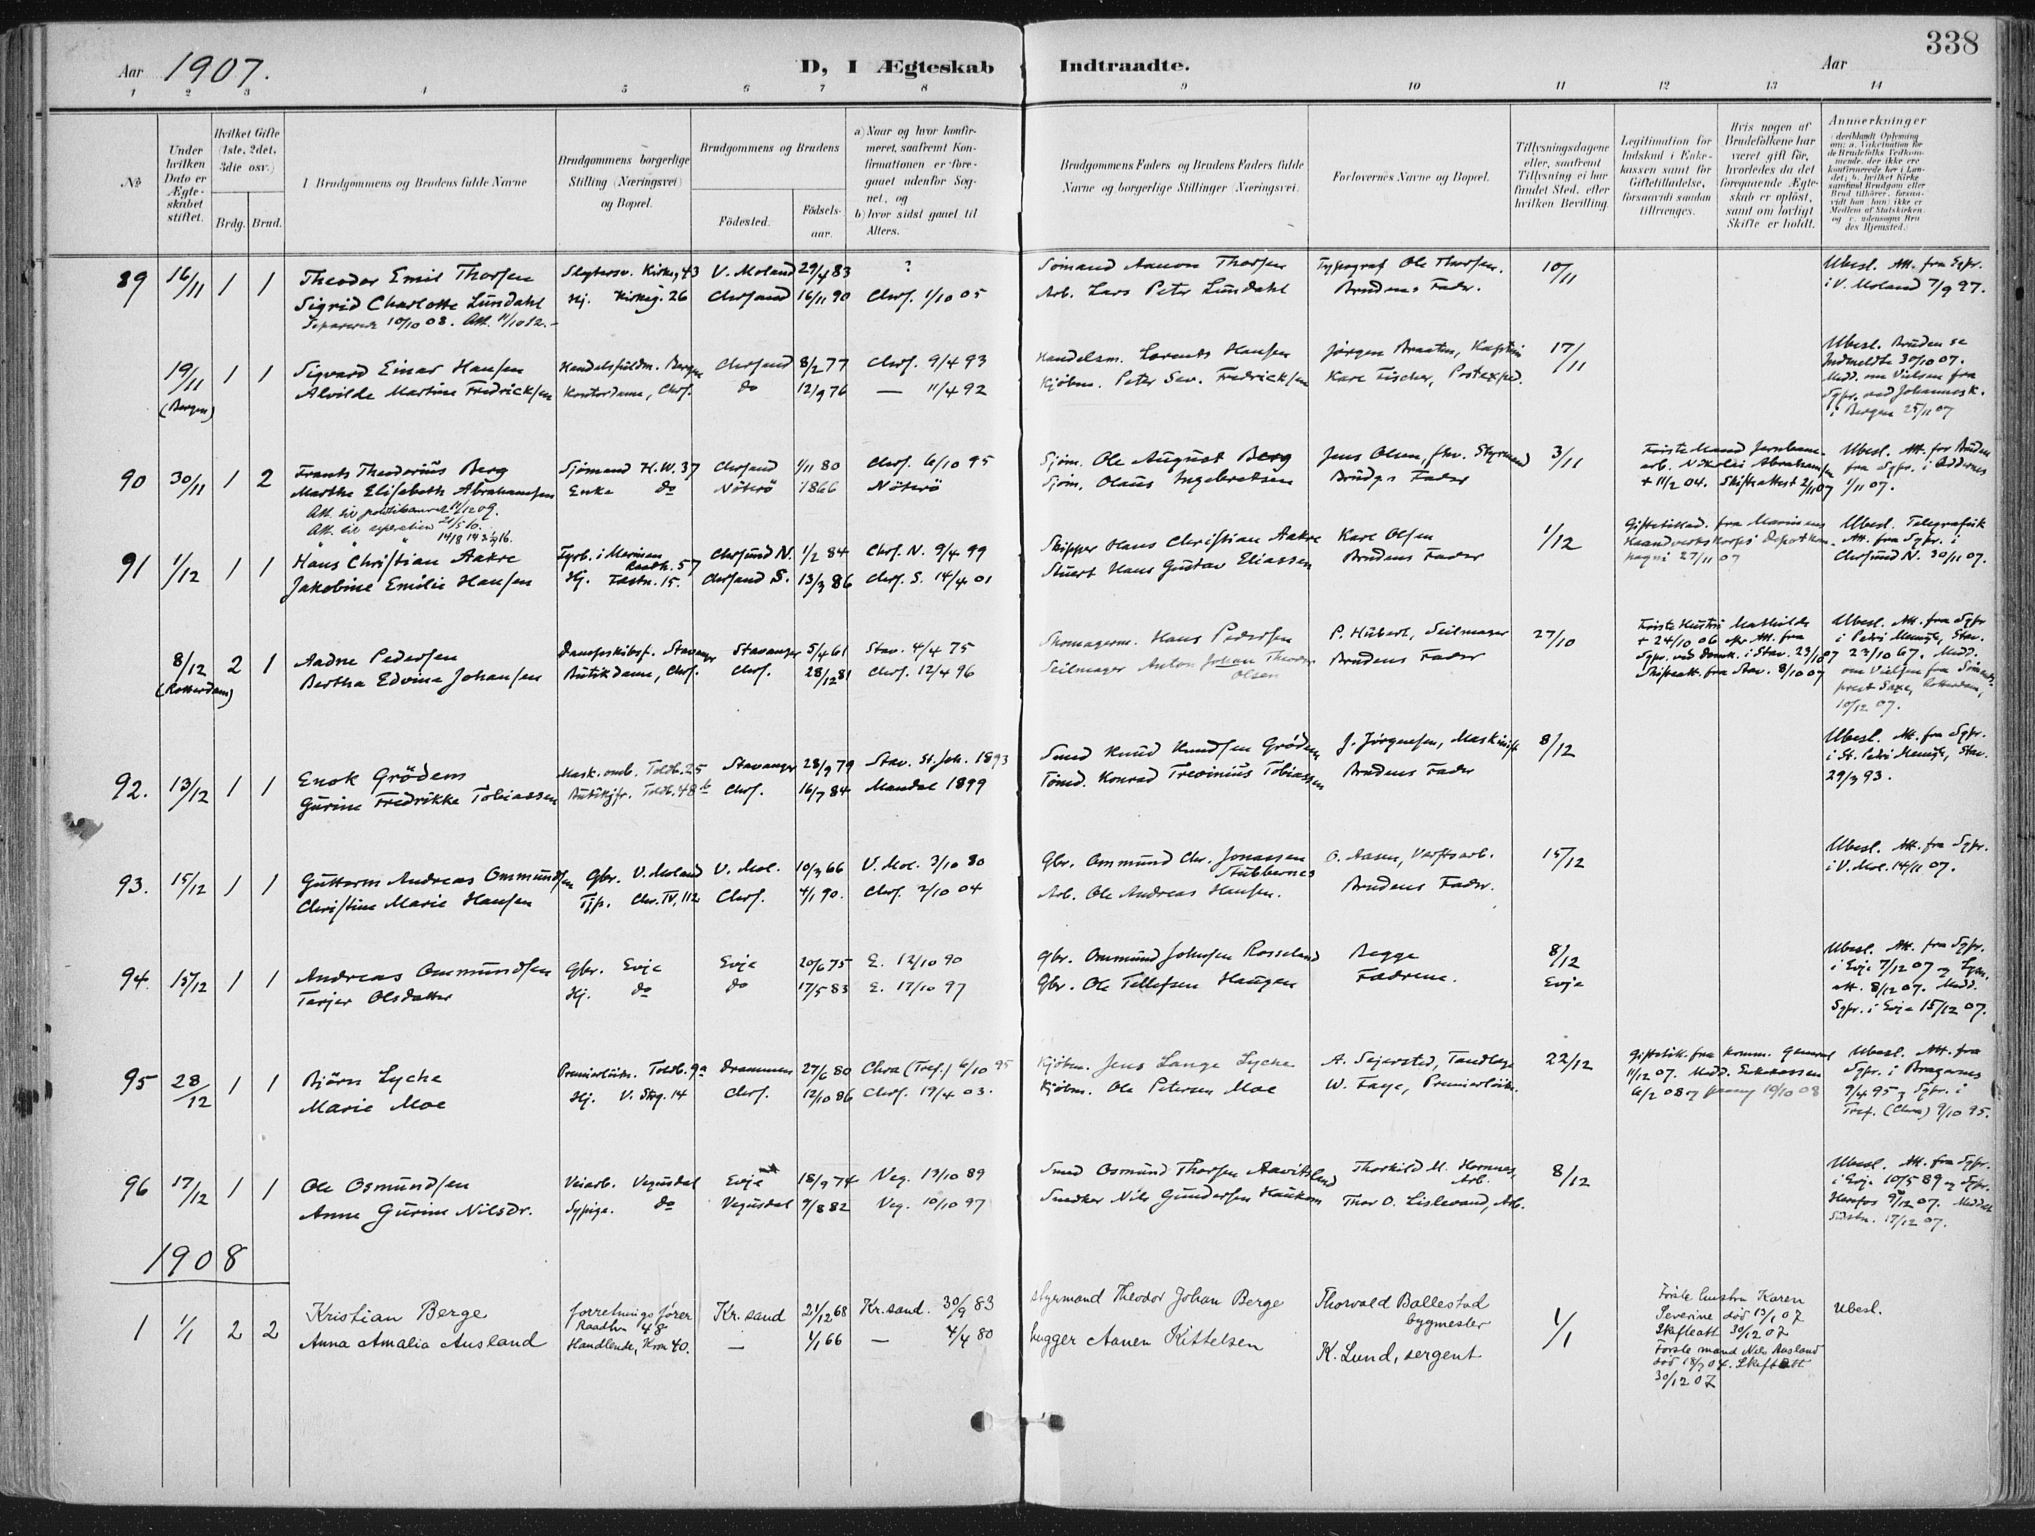 338
Aar 1907. D, I Ægteskab Indtraadte. Aar
1 2 3 4 5 6 7 8 9 10 11 12 13 14
No
Under hvilken Dato er Ægteskabet stiftet.
Hvilket Gifte (1ste, 2det, 3die osv.)
Brdg. Brud.
I Brudgommens og Brudens fulde Navne
Brudgommens borgerlige Stilling (Næringsvei) og Bopæl.
Brudgommens og Brudens
Födested.
Födselsaar.
a) Naar og hvor konfirmeret, saafremt Konfirmationen er foregaaet udenfor Sognet, og
b) hvor sidst gaaet til Alters.
Brudgommens Faders og Brudens Faders fulde Navne og borgerlige Stillinger (Næringsvei).
Forlovernes Navne og Bopæl.
Tillysningsdagene eller, saafremt Tillysning ei har fundet Sted, efter hvilken Bevilling.
Legitimation for Indskud i Enkekassen samt for Giftetilladelse, forsaavidt saadan tiltrænges.
Hvis nogen af Brudefolkene har været gift för, hvorledes da det foregaaende Ægteskab er oplöst, samt om lovligt Skifte er holdt.
Anmerkninger
89 16/11 1 1 Theodor Emil Thorsen V. Moland 29/4 83 ? Sömand Aanon Thorsen Typograf Ole Thorsen. 10/11 Ubesl. Att. fra Sgpr.
Sigrid Charlotte Lundahl Hj. Kirkeg. 26 Chrsand 16/11 90 Chrs. 1/10 05 Arb. Lars Peter Lundahl Brudens Fader. i V. Moland 7/9 97.
10/10 08. Att. 11/10 12.
19/11 1 1 Sigvard Einar Hansen Bergen Chrsand 8/2 77 Chrs. 9/4 93 Handelsm. Lorents Hansen Jörgen Braaten, Kaptein 17/11 Ubesl. Bruden se
(Bergen) Alvilde Martine Fredricksen Kontordame, Chrs. do 12/9 76 — 11/4 92 Kjöbm. Peter Sev. Fredricksen Karl Fischer, Postexped. Indmeldte 30/10 07.
Medd. om Vielsen fra
Sgpr. ved Johannesk.
i Bergen 25/11 07
90 30/11 1 2 Frants Theodorius Berg Sjömand H.W. 37 Chrsand 1/11 80 Chrs. 6/10 95 Sjöm. Ole August Berg Jens Olsen, fhv. Styrmand 3/11 Förste Mand Jernbane- Ubesl. Att. for Bruden
Marthe Elisabeth Abrahamsen Enke do Nöterö 1866 Nöterö Sjöm. Olaus Ingebretsen Brudgs Fader arb. Nikolai Abrahamsen fra Sgpr. i Oddernes
+ 11/2 04. Skifteattest 2/11 07 1/11 07.
Att. til 11/12 09.
Att. til separation 21/5 10.
91 1/12 1 1 Hans Christian Aakre Fyrb. i Marinen Raadh. 57 Chrsund N. 1/2 84 Chrs. N. 9/4 99 Skipper Hans Christian Aakre Karl Olsen 1/12 fra Marinens Ubesl. Telegrafisk
Jakobine Emilie Hansen Hj. Fæstn. 15. Chrsand S. 13/3 86 Chrs. S. 14/4 01 Stuert Hans Gustav Eliassen Brudens Fader 27/11 07 Att. fra Sgpr. i
Chrsund N. 30/11 07.
8/12 2 1 Aadne Pedersen Dampskibsf. Stavanger Stavanger 5/4 61 Stav. 4/4 75 Skomagerm. Hans Pedersen P. Hubert, Seilmager 27/10 Förste Hustru Mathilde Ubesl. Att. fra Sgpr
(Rotterdam) Bertha Edvine Johansen Butikdame, Chrs. Chrs. 28/12 81 Chrs. 12/4 96 Seilmager Anton Johan Theodor Olsen Brudens Fader + 24/10 06 i Petri Menigh., Stav.
Sgpr. ved Domk. i Stav. 29/10 07
Skifteatt. fra Stav. 8/10 07 om Vielsen fra Sömands-
prest Saxe, Rotterdam,
10/12 07.
92. 13/12 1 1 Enok Grödem Toldb. 25 Stavanger 28/9 79 Stav. St. Joh. 1893 Smed Knud Knudsen Grödem J. Jörgensen, Maskinist 8/12 Ubesl. Att. fra Sgpr.
Gurine Fredrikke Tobiassen Toldb. 48 Chrs. 16/7 84 Mandal 1899 Tömd. Konrad Trevinius Tobiassen Brudens Fader i St. Petri Menigh., Stav.
29/3 93.
93. 15/12 1 1 Guttorm Andreas Ommundsen Gbr. V. Moland V. Mol. 10/3 66 V. Mol. 3/10 80 Gbr. Ommund Chr. Jonassen Stubbernes O. Aasen, Verftsarb. 15/12 Ubesl. Att. fra Sgpr.
Christine Marie Hansen Tjp. Chr. IV, 112 Chrs. 4/1 90. Chrs. 2/10 04 Arb. Ole Andreas Hansen. Brudens Fader. i V. Mol. 14/11 07.
94. 15/12 1 1 Andreas Ommundsen Gbr. Evje Evje 20/6 75 E. 12/10 90 Gbr. Ommund Johnsen Rosseland Begge 8/12 Ubesl. Att. fra Sgpr.
Tarjer Olsdatter Hj. do do 17/5 83 E. 17/10 97 Gbr. Ole Tellefsen Haugen Fædrene. Evje i Evje 7/12 07 og Lysn.
att. 8/12 07. Medd.
Sgpr. i Evje 15/12 07.
95 28/12 1 1 Björn Lyche Premierlöitn. Toldb. 9a Drammen 27/6 80 Chra (Tref.) 6/10 95 Kjöbm. Jens Lange Lyche A. Sejersted, Tandlæge 22/12 Giftetil. fra komm. General Ubesl. Att. fra
Marie Moe Hj. V. Stg. 14 Chrs. 12/10 86 Chrs. 19/4 03. Kjöbm. Ole Petersen Moe W. Faye, Premierlöitn. 11/12 07. Medd. Enkekassen Sgpr. i Bragernes
6/2 08 19/10 08 9/4 95 og Sgpr. i
Tref. (Chra) 9/10 95.
96 17/12 1 1 Ole Osmundsen Veiarb. Vegusdal Evje 18/9 74 Veg. 13/10 89 Smed Osmund Thorsen Aavitsland Thorkild M. Hornnes, Arb. 8/12 Ubesl. Att. fra Sgpr.
Anne Gurine Nilsdr. Sypige. do Vegusdal 9/8 82 Veg. 10/10 97 Snedker Nils Gundersen Haukom Thor O. Lislevand, Arb. i Evje 10/5 89 og Sgpr.
9/12 07.
17/12 07.
1908
1 1/1 2 2 Kristian Berge forretningsförer Raadhu 48 Kr.sand 21/12 68 Kr.sand. 30/9 83 styrmand Theodor Johan Berge Thorvald Ballestad bygmester 1/1 Förste hustru Karen Ubesl.
Anna Amalia Ausland Handlende, Kron 40. — 4/1 66 — 4/4 80 hugger Aanen Kittelsen K. Lund, sergent Severine död 13/1 07
Skifteatt 30/12 07
Förste mand Nils Ausland
död 18/7 04. Skifteatt
30/12 07